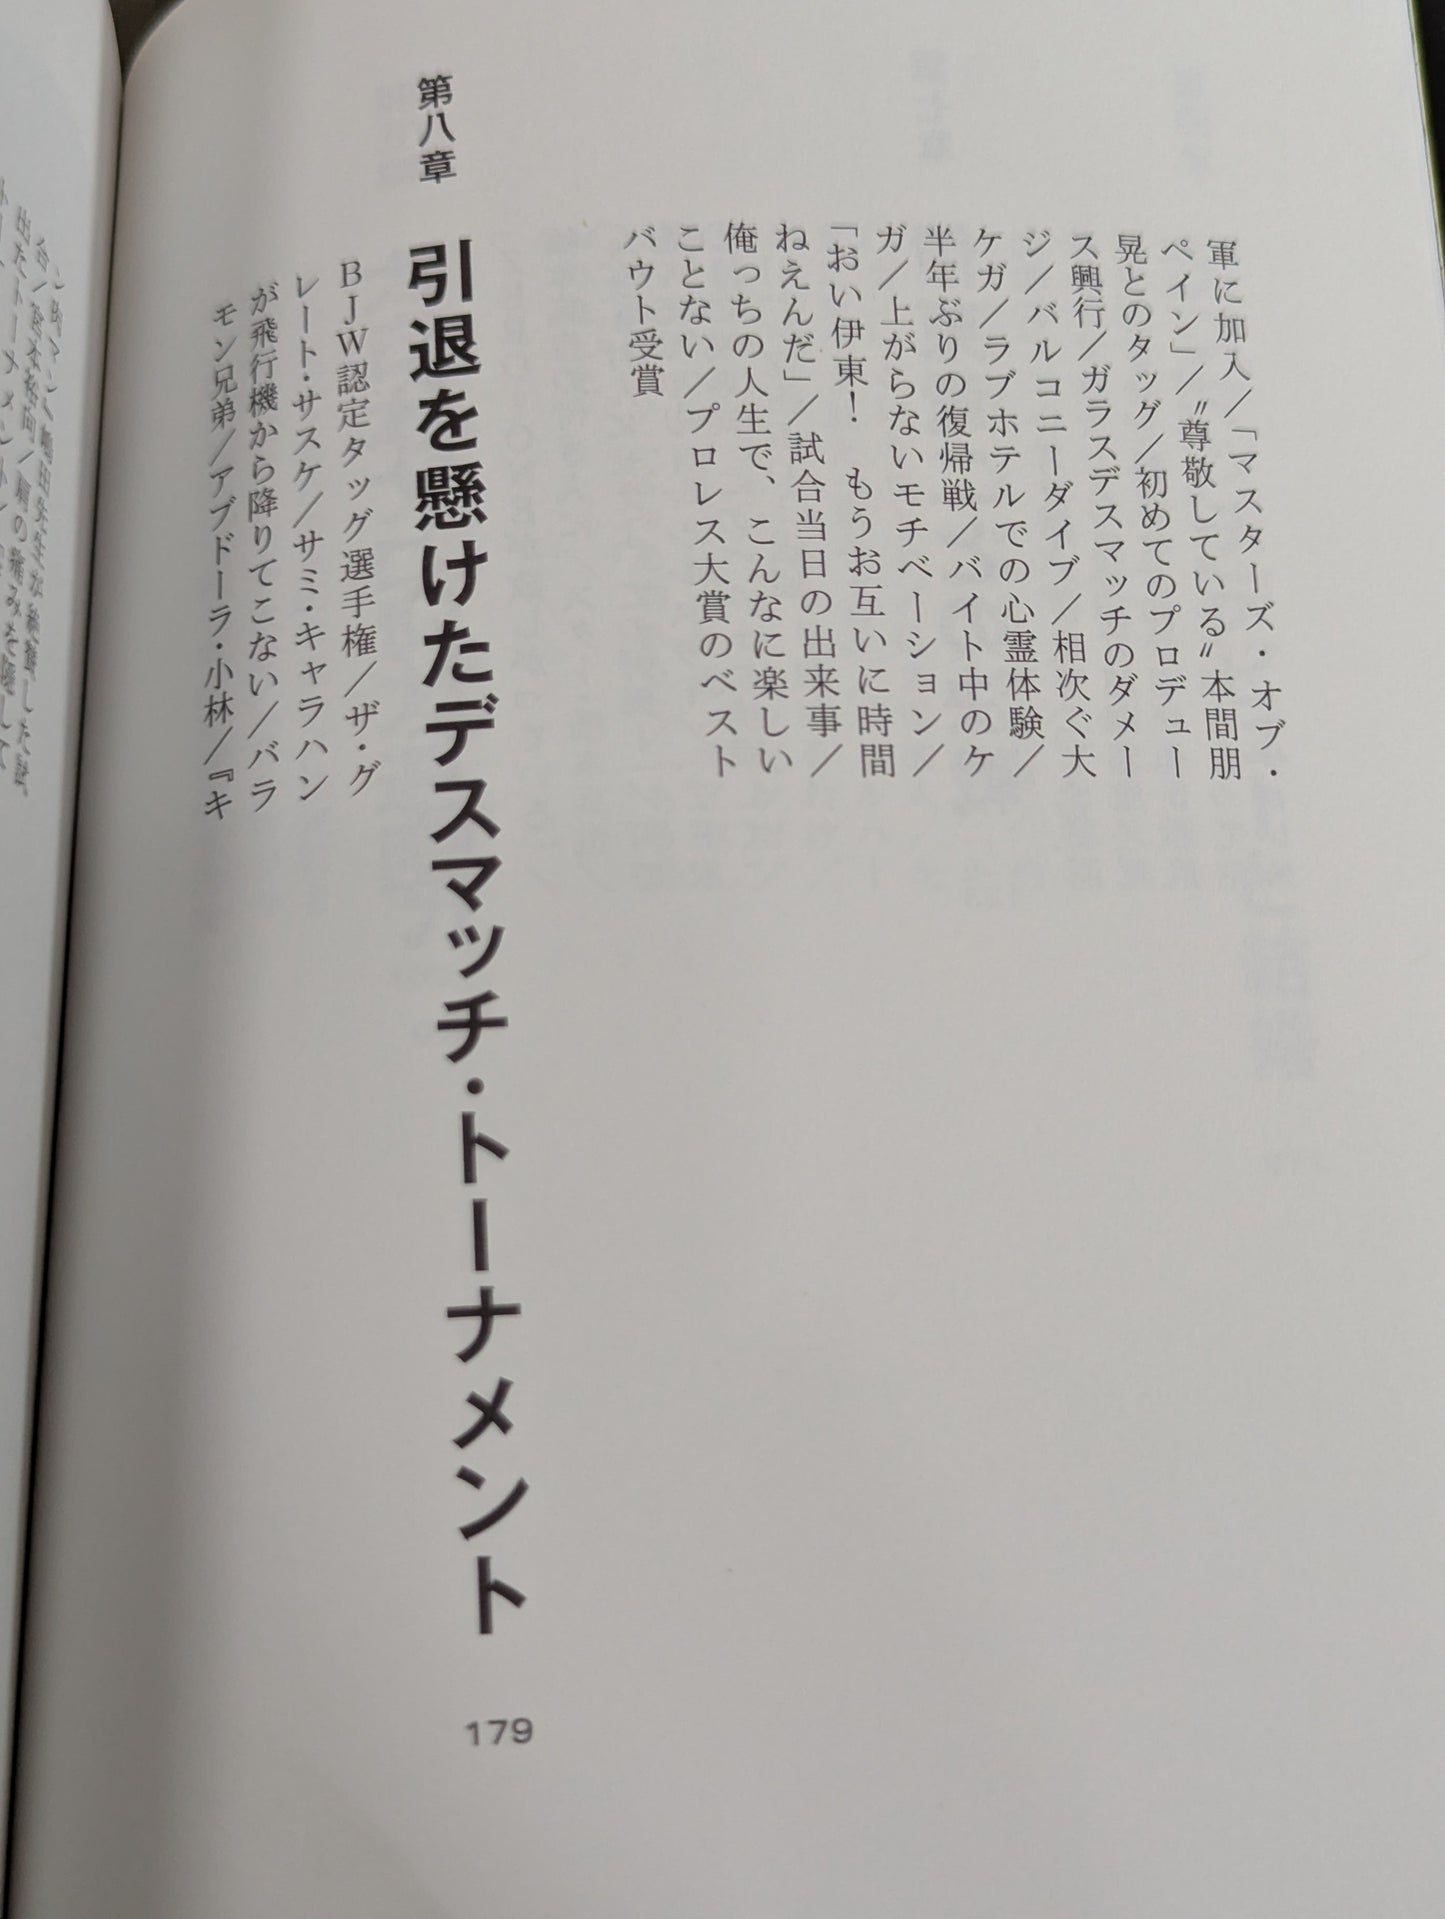 軍に加入／「マスターズ・オブ・
ペイン」／〝尊敬している〟本間朋
晃とのタッグ／初めてのプロデュー
ス興行／ガラスデスマッチのダメー
ジ／バルコニーダイブ／相次ぐ大
ケガ／ラブホテルでの心霊体験／
半年ぶりの復帰戦／バイト中のケ
ガ／上がらないモチベーション／
「おい伊東！　もうお互いに時間
ねえんだ」／試合当日の出来事／
俺っちの人生で、こんなに楽しい
ことない／プロレス大賞のベスト
バウト受賞
第八章　引退を懸けたデスマッチ・トーナメント　179
ＢＪＷ認定タッグ選手権／ザ・グ
レート・サスケ／サミ・キャラハン
が飛行機から降りてこない／バラ
モン兄弟／アブドーラ・小林／『キ